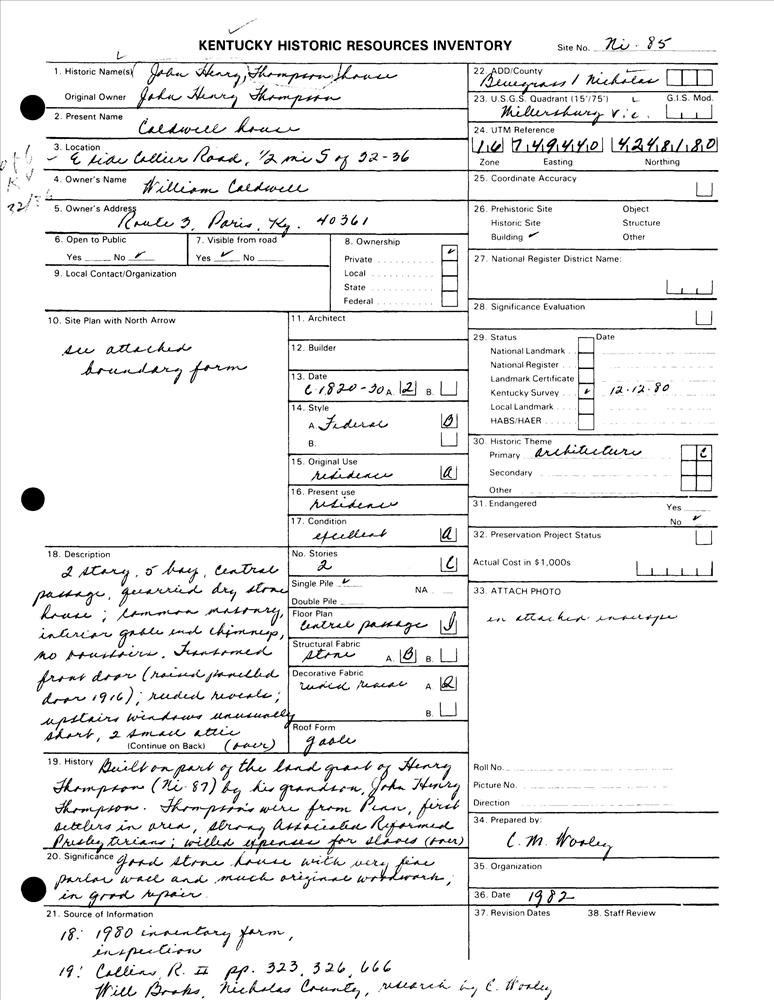 KENTUCKY HISTORIC RESOURCES INVENTORY
Site No. Ni-85
1. Historic Name(s) John Henry Thompson house
Original Owner John Henry Thompson
2. Present Name
Caldwell house
3. Location
E side Collier Road, 1/2 mi S of 32-36
4. Owner's Name William Caldwell
5. Owner's Address
Route 3, Paris, Ky. 40361
6. Open to Public
Yes No ✓
7. Visible from road
Yes ✓ No
8. Ownership
Private ✓
Local
State
Federal
9. Local Contact/Organization
10. Site Plan with North Arrow
see attached
boundary form
11. Architect
12. Builder
13. Date
C. 1820-30 A. 2 B.
14. Style
A. Federal B
B.
15. Original Use
residence A
16. Present use
residence
17. Condition
excellent A
18. Description
2 story, 5 bay, central
passage, quarried dry stone
house; common masonry,
interior gable end chimneys,
no voussoirs. Transomed
front door (raised panelled
door 1916); reeded reveals;
upstairs windows unusually
short, 2 small attic
(Continue on Back) (over)
No. Stories
2 C
Single Pile ✓ NA
Double Pile
Floor Plan
central passage
Structural Fabric
stone A. B B.
Decorative Fabric
reeded reveal A
B.
Roof Form
gable
19. History Built on part of the land grant of Henry
Thompson (Ni-87) by his grandson, John Henry
Thompson. Thompsons were from Penn, first
settlers in area, strong Associated Reformed
Presbyterians; willed expenses for slaves (over)
20. Significance good stone house with very fine
parlor wall and much original woodwork;
in good repair.
21. Source of Information
18: 1980 inventory form,
inspection
19: Collins, R. II pp. 323, 326, 666
Will Books, Nicholas County, research by C. Wooley
22. ADD/County
Bluegrass / Nicholas
23. U.S.G.S. Quadrant (15'/75') G.I.S. Mod.
Millersburg
24. UTM Reference
16 749440 4248180
Zone Easting Northing
25. Coordinate Accuracy
26. Prehistoric Site Object
Historic Site Structure
Building ✓ Other
27. National Register District Name:
28. Significance Evaluation
29. Status Date
National Landmark
National Register
Landmark Certificate
Kentucky Survey ✓ 12-12-80
Local Landmark
HABS/HAER
30. Historic Theme
Primary architecture C
Secondary
Other
31. Endangered Yes
No ✓
32. Preservation Project Status
Actual Cost in $1,000s
33. ATTACH PHOTO
in attached envelope
Roll No.
Picture No.
Direction
34. Prepared by:
C. M. Wooley
35. Organization
36. Date 1982
37. Revision Dates 38. Staff Review